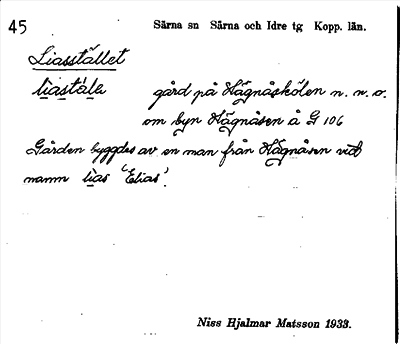 45
Särna sn Särna och Idre tg Kopp. län.
Liasstället
liastäla
gård på Hägnåskölen n. n. o.
om byn Hägnåsen å G 106
Gården byggdes av en man från Hägnåsen vid
namn lias 'Elias'.
Niss Hjalmar Matsson 1933.